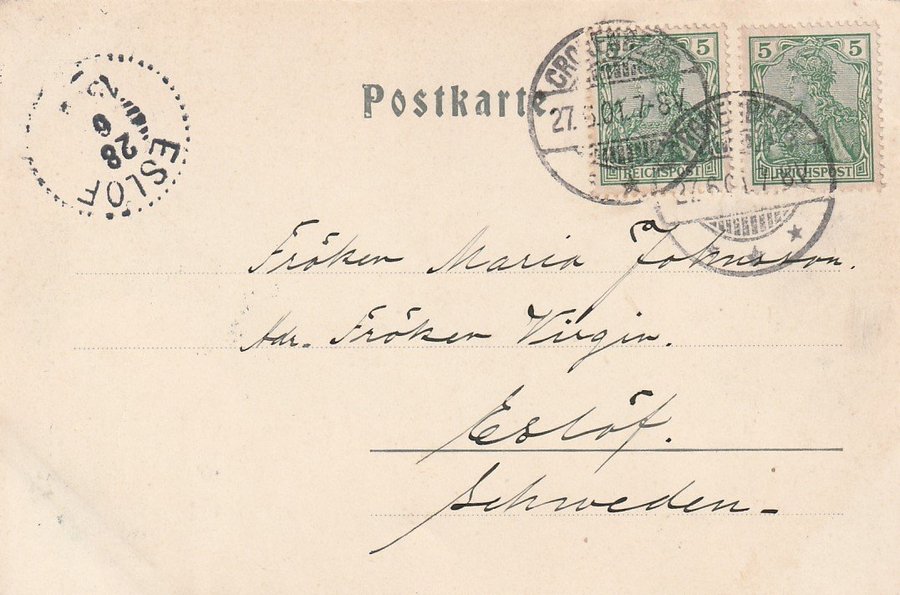 Postkarte
5
5 5
REICHSPOST
REICHSPOST
27.6.01.7-8V.
27.6.01.7-8V.
28
6
ESLÖF
Fröken Maria Johnsson.
Adr. Fröken Virgin.
Eslöf.
Schweden-